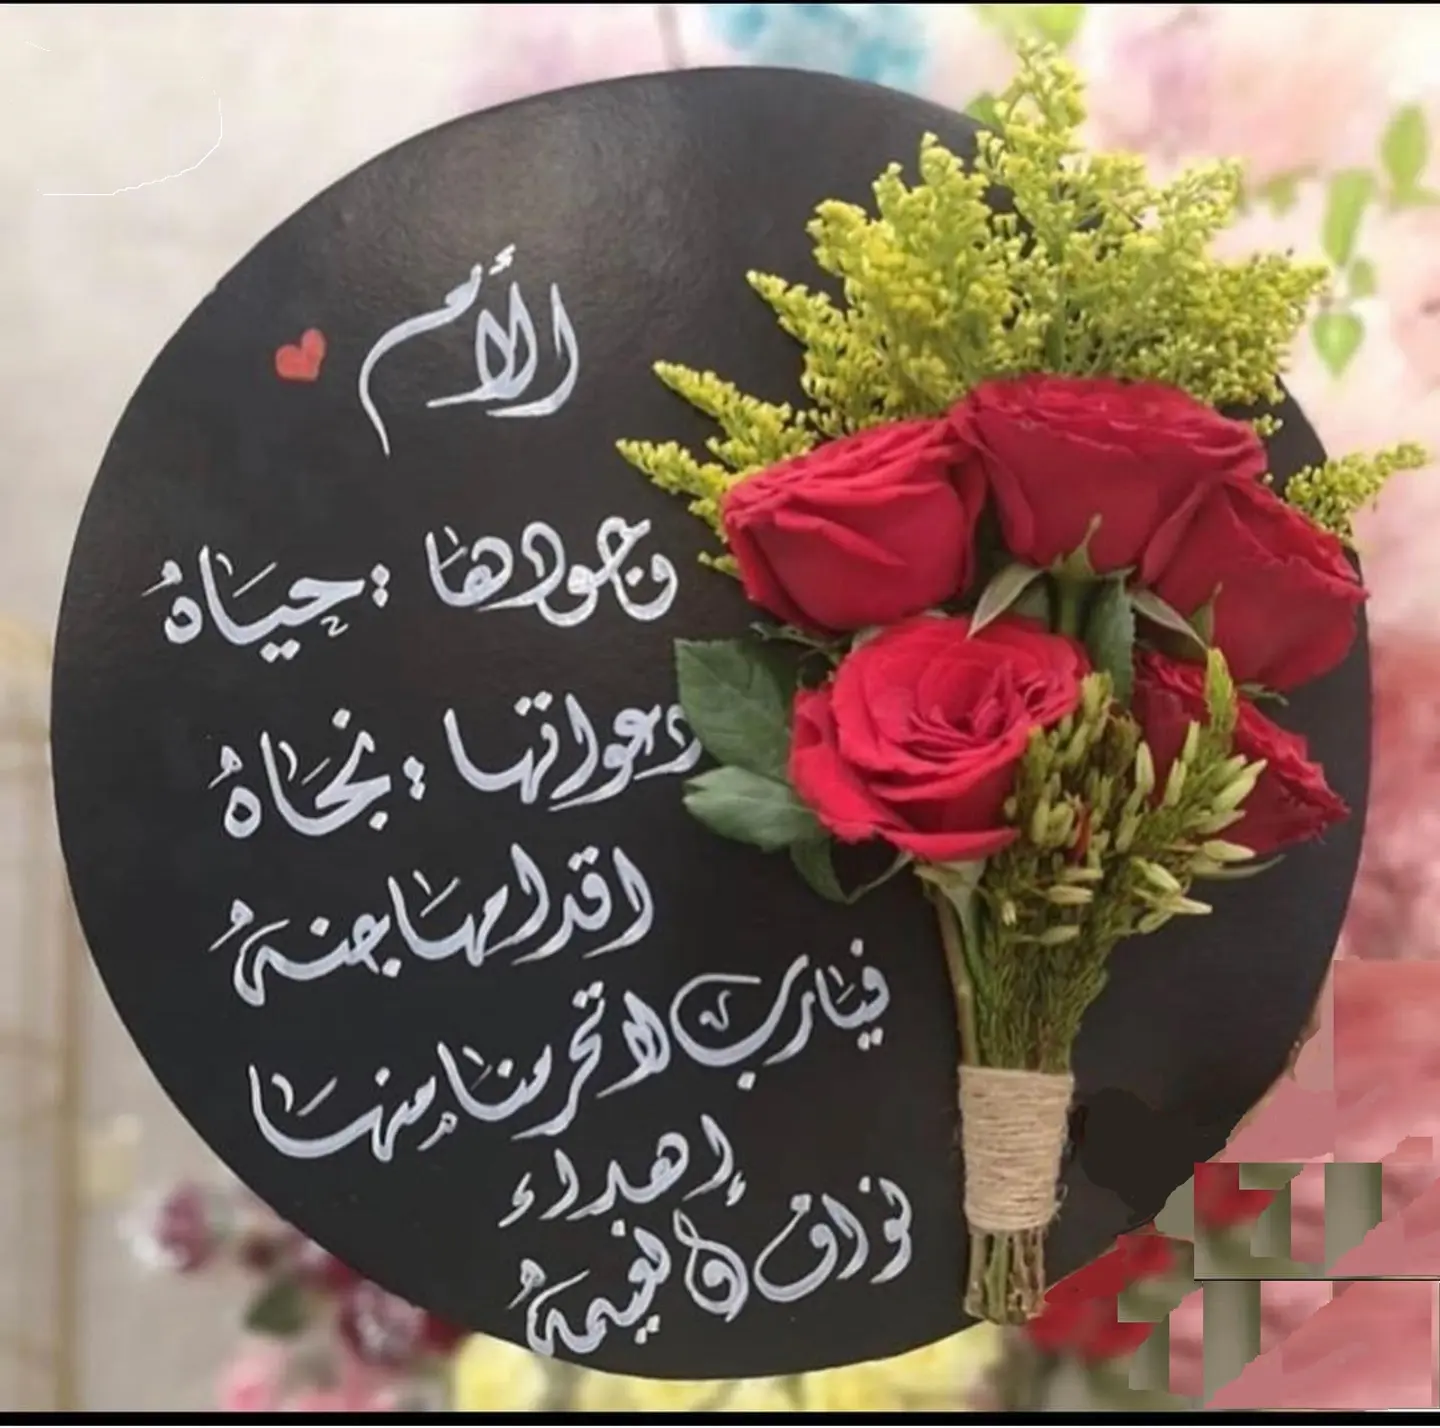 الأم
وجودها : حياه
دعواتها : نجاه
اقدامها جنه
فيارب لا تحرمنا منها
إهداء
نواف ونعيمه